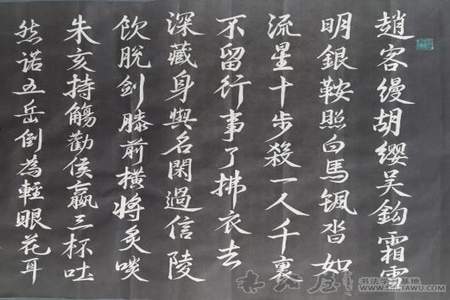 趙客縵胡纓吳鈎霜雪
明銀鞍照白馬颯沓如
流星十步殺一人千裏
不留行事了拂衣去
深藏身與名閑過信陵
飲脫劍膝前橫將炙啖
朱亥持觴勸侯嬴三杯吐
然諾五岳倒為輕眼花耳
书法学习基地